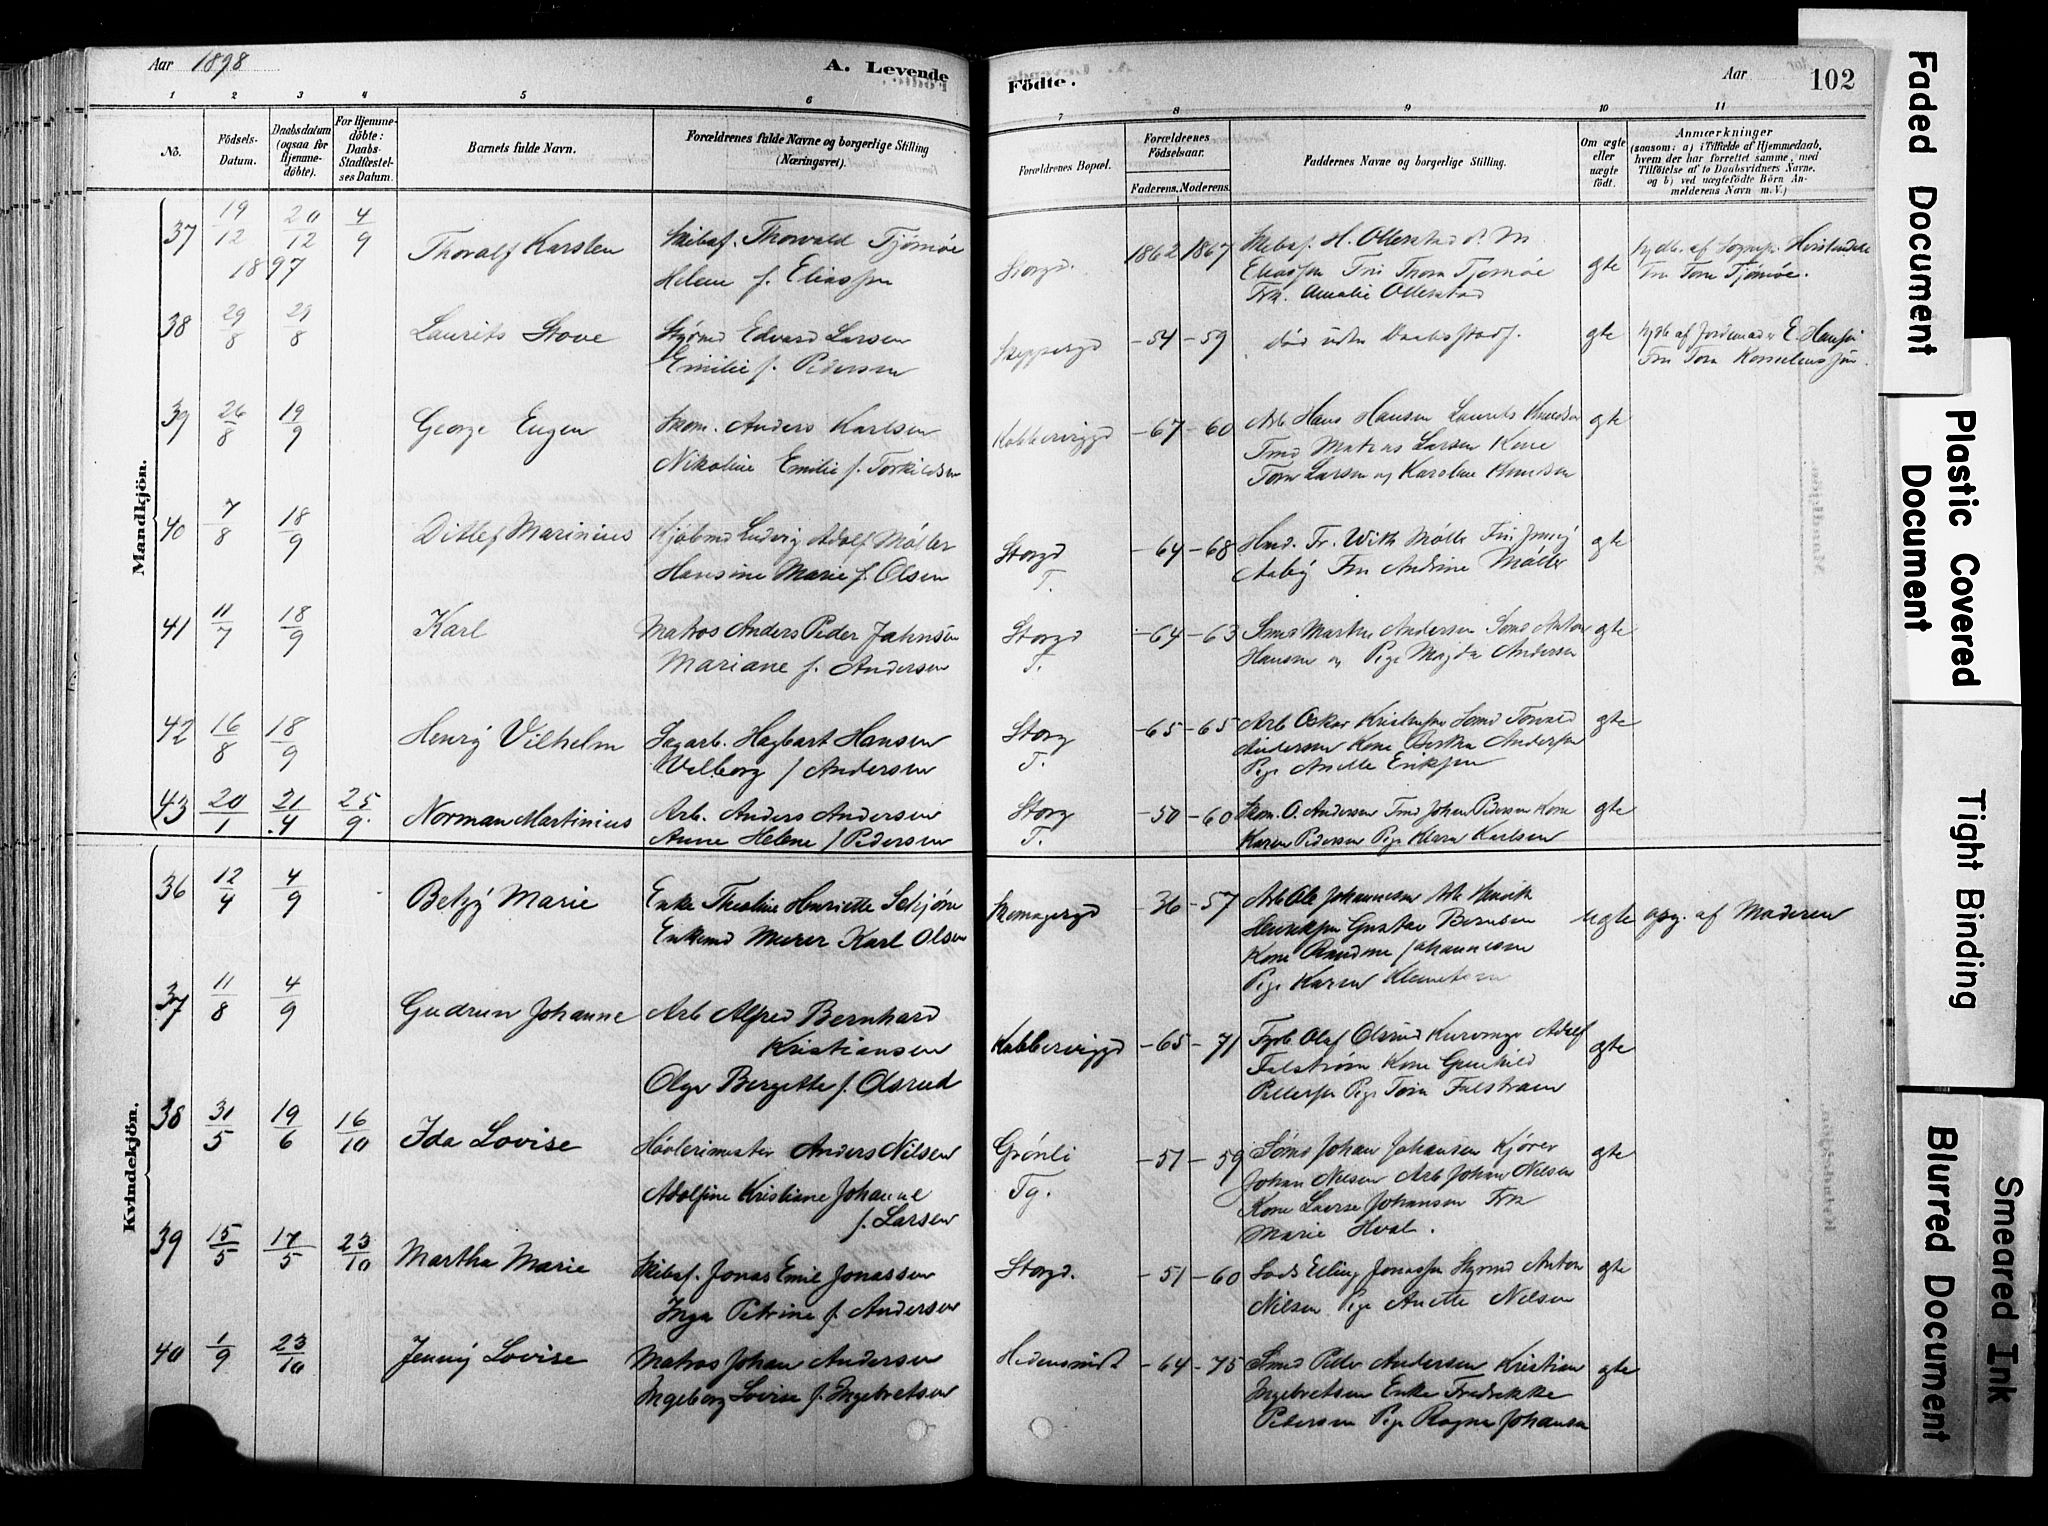 Aar 1898
A. Levende
Födte.
Aar
102
1 2 3 4 5 6 7 8 9 10 11
No.
Födsels-Datum.
Daabsdatum (ogsaa for Hjemme-döbte).
For Hjemme-döbte: Daabs-Stadfæstel-ses Datum.
Barnets fulde Navn.
Forældrenes fulde Navne og borgerlige Stilling (Næringsvei).
Forældrenes Bopæl.
Forældrenes Födselsaar.
Faderens. Moderens.
Faddernes Navne og borgerlige Stilling.
Om ægte eller uægte födt.
Anmærkninger
(saasom: a) i Tilfælde af Hjemmedaab,
hvem der har forrettet samme, med
Tilföielse af to Daabsvidners Navne,
og b) ved uægtefödte Börn An-
melderens Navn m. V.)
Mandkjön.
37 19/12 1897 20/12 4/9 Thoralf Karsten Skibsf. Thorvald Tjømøe
Helene f. Eliassen
Storgd. 1862 1867 Skibsf. H. Ollerstad
Eliassen Fru Thora Tjømøe
Frk. Amalie Ollerstad
gte
Fru Tora Tjømøe.
38 29/8 29/8 Laurits Stove Styrmd Edvard Larsen
Emilie f. Pedersen
Skippergd -54 -59 død uden Daabsstadf. gte hjdb. af Jordemoder E. Hansen
Fru Tora
39 26/8 19/9 George Eugen Skom. Anders Karlsen
Nikoline Emilie f. Torkildsen
Kobberviggd -67 -60 Arb Hans Hansen Laurits Knudsen
Tmd Matias Larsen Kone
Torn Larsen og Karoline Knudsen
gte
40 7/8 18/9 Ditlef Marinius Kjøbmd Ludvig Adolf Møller
Hansine Marie f. Olsen
Storgd T. -64 -68 Hmd. Fr. With Møller Fru Jenny
Aaby Fru Andrine Møller
gte
41 11/7 18/9 Karl Matros Anders Peder Jahnsen
Mariane f. Andersen
Storgd T. -64 -63 Smd Martin Andersen Smd Anton
Hansen og Pige Magda Andersen
gte
42 16/8 18/9 Henry Vilhelm Sagarb. Hagbart Hansen
Valborg f Andersen
Storg T. -65 -65 Arb Oskar Kristensen Smd Torvald
Andersen Kone Bertha Andersen
Pige Anette Eriksen
gte
43 20/1 21/4 25/9 Norman Martinius Arb. Anders Andersen
Anne Helene f Pedersen
Storg T. -50 -60 Skom. O. Andersen Tmd Johan Pedersen Kone
Karen Pedersen Pige Karlsen
gte
Kvindekjön.
36 12/4 4/9 Betzy Marie Enke Thealine Henriette
Enkemd Murer Karl Olsen
Skomagergd -36 -57 Arb Ole Johannesen Arb Henrik
Henriksen Gustav Berntsen
Kone Johannesen
Pige Karen Klemetsen
ugte opg. af Moderen
37 11/8 4/9 Gudrun Johanne Arb Alfred Bernhard
Kristiansen
Olga Bergitte f. Olsrud
Kobbervigd -65 -71 Fyrb Olaf Olsrud Kurvmg Adolf
Falstrøm Kone Gunhild
Pettersen Pige Tora Falstrøm
gte
38 31/5 19/6 16/10 Ida Lovise Høvlerimester Anders Nilsen
Adolfine Kristiane Johanne
f. Larsen
Grønli Tg. -51 -59 Sømd Johan Johansen Kjører
Johan Nilsen Arb Johan Nilsen
Kone Lovise Johansen Frk
Marie Hval.
gte
39 15/5 17/5 23/10 Martha Marie Skibsf. Jonas Emil Jonassen
Inga Petrine f. Andersen
Storgd. -51 -60 Lods Elling Jonassen Styrmd Anton
Nilsen Pige Anette Nilsen
gte
40 1/9 23/10 Jenny Lovise Matros Johan Andersen
Ingeborg Lovise f. Ingebretsen
-64 -75 Smd Peder Andersen Kristian
Ingebretsen Enke Fredrikke
Petersen Pige Ragna Johansen
gte
Faded Document
Plastic Covered Document
Tight Binding
Blurred Document
Smeared Ink